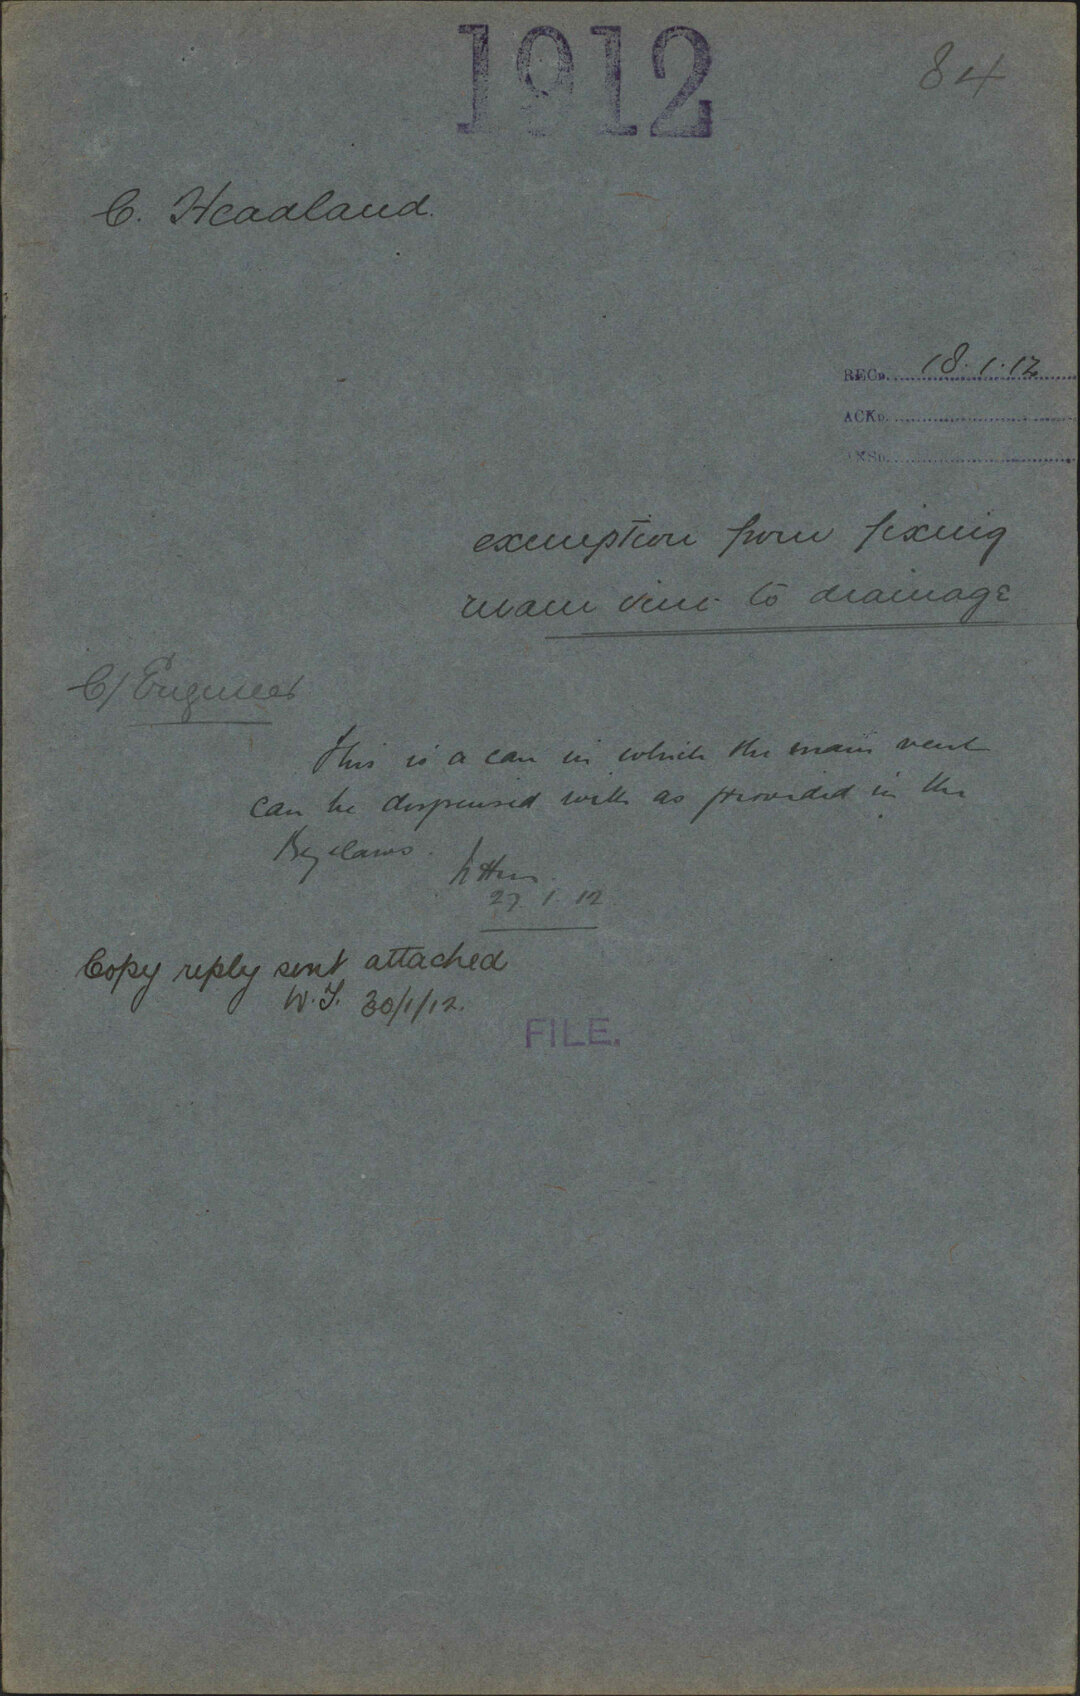 1912
84
C. Headland.
RECD. 18.1.12
ACKD.
ANSD.
exemption from fixing
main vent to drainage
C/ Engineer
This is a case in which the main vent
can be dispensed with as provided in the
Byelaws.
27.1.12
Copy reply sent attached
W.J. 30/1/12.
FILE.